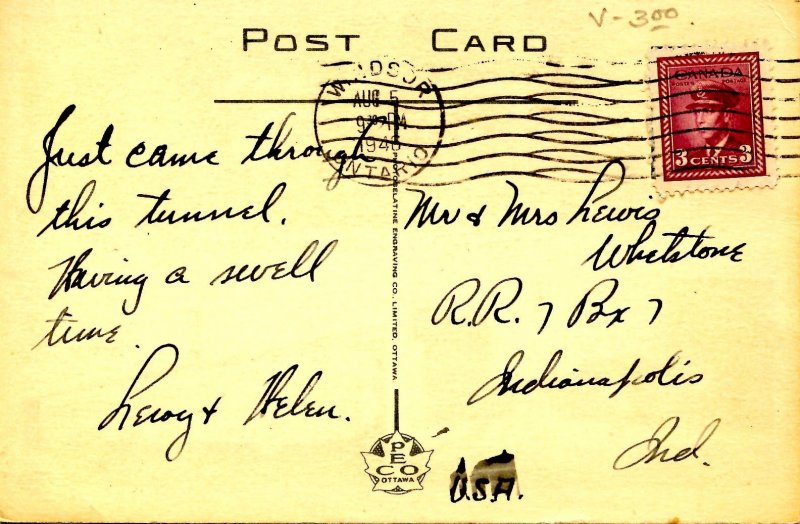 V-300
POST CARD
WINDSOR
AUG 5
9 30 PM
1946
ONTARIO
CANADA
POSTES POSTAGE
3 CENTS 3
Just came through
this tunnel.
Having a swell
time.
Leroy & Helen.
PHOTOGELATINE ENGRAVING CO., LIMITED, OTTAWA
Mr & Mrs Lewis
Whetstone
R.R. 7 Bx 7
Indianapolis
Ind.
U.S.A.
PECO
OTTAWA